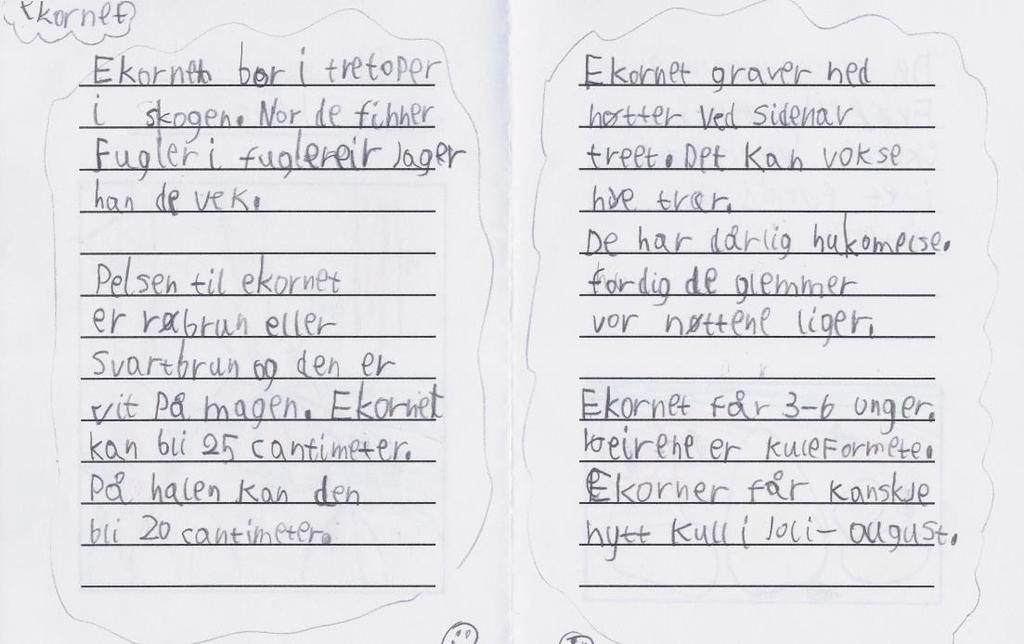 Ekornet
Ekornet bor i tretoper
i skogen. Nor de finner
Fugler i fuglereir Jager
han de vek.
Pelsen til ekornet
er røbrun eller
Svartbrun og den er
vit på magen. Ekornet
kan bli 25 cantimeter.
På halen kan den
bli 20 cantimeter.
Ekornet graver ned
nøtter ved sidenav
treet. Det kan vokse
nye trær.
De har dårlig hukomelse.
fordig de glemmer
vor nøttene liger.
Ekornet får 3-6 unger.
reirene er kuleformete.
Ekorner får kanskje
nytt kull i Joli- august.